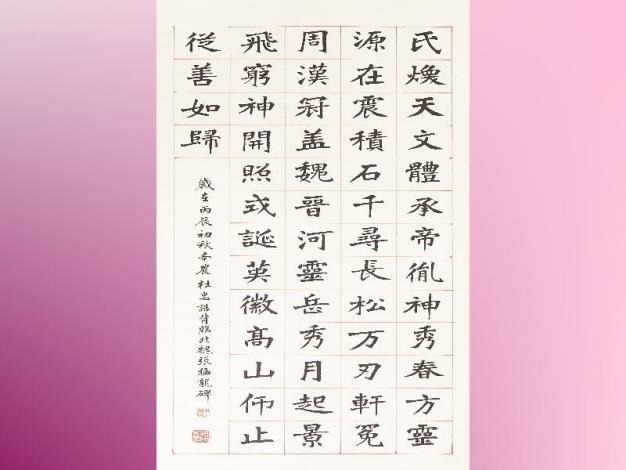 氏煥天文體承帝胤神秀春方靈
源在震積石千尋長松万刃軒冕
周漢冠盖魏晉河靈岳秀月起景
飛窮神開照式誕英徽髙山仰止
從善如歸
歲在丙辰初秋農杜忠誥背臨北魏張猛龍碑